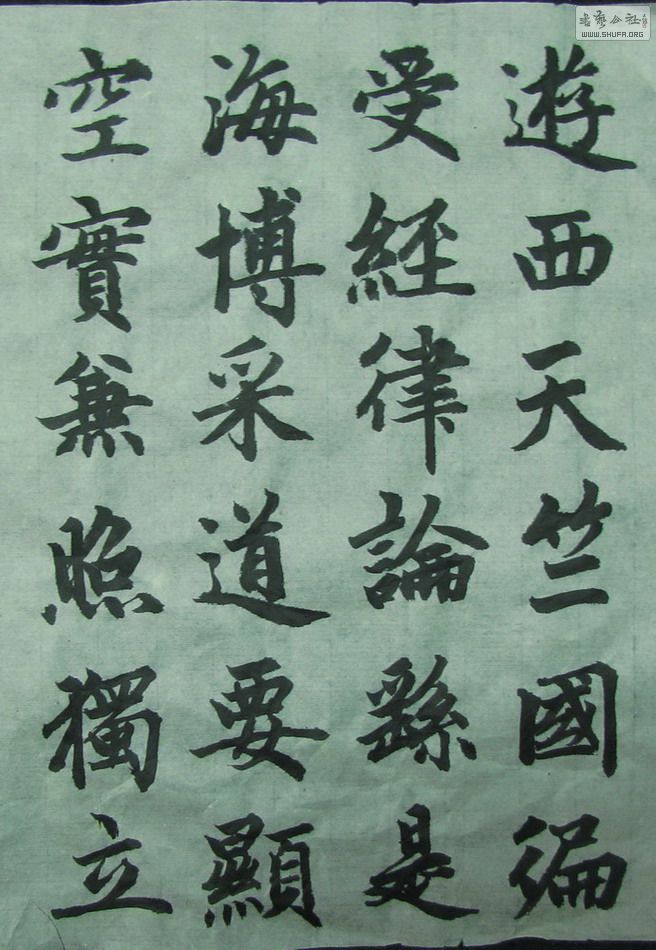 遊西天竺國徧
受經律論繇是
海博采道要顯
空實兼照獨立
書藝公社
WWW.SHUFA.ORG